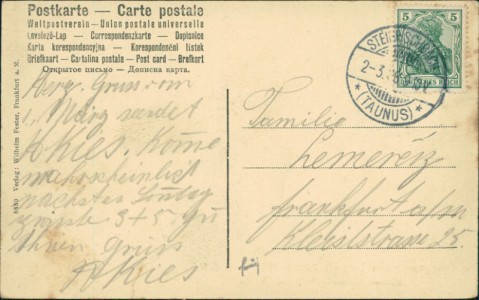 Postkarte — Carte postale
Weltpostverein — Union postale universelle
Levelező-Lap — Correspondenzkarte — Dopisnice
Karta korespondencyjna — Korespondenční lístek
Briefkaart — Cartolina postale — Post card — Brefkort
Открытое письмо — Дописна карта.
5 5
(TAUNUS)
Verlag: Wilhelm Fester, Frankfurt a. M.
Herz. Gruss vom
1. März sendet
AKies. Kome
wahrscheinlich
nächsten Sontag
zwischen 3+5 zu
Ihnen Gruss
AKies
Familie
Frankfurt a/m
Kleiststrasse 25.